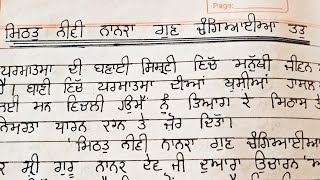 Page:
ਮਿਠਤੁ ਨੀਵੀ ਨਾਨਕਾ ਗੁਣ ਚੰਗਿਆਈਆ ਤਤੁ
ਪਰਮਾਤਮਾ ਦੀ ਬਣਾਈ ਸ੍ਰਿਸ਼ਟੀ ਵਿੱਚ ਮਨੁੱਖੀ ਜੀਵਨ
ਹੈ। ਬਾਣੀ ਵਿੱਚ ਪਰਮਾਤਮਾ ਦੀਆਂ ਖੁਸ਼ੀਆਂ ਹਾਸਲ
ਲਈ ਮਨ ਵਿਚਲੀ ਹਉਮੈਂ ਨੂੰ ਤਿਆਗ ਕੇ ਮਿਠਾਸ ਤੇ
ਨਿਮਰਤਾ ਧਾਰਨ ਕਰਨ ਤੇ ਜ਼ੋਰ ਦਿੱਤਾ।
'ਮਿਠਤੁ ਨੀਵੀ ਨਾਨਕਾ ਗੁਣ ਚੰਗਿਆਈਆ
ਸ੍ਰੀ ਗੁਰੂ ਨਾਨਕ ਦੇਵ ਜੀ ਦੁਆਰਾ ਉਚਾਰਨ